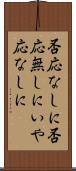 否応なしに否
応無しにいや
応なしに